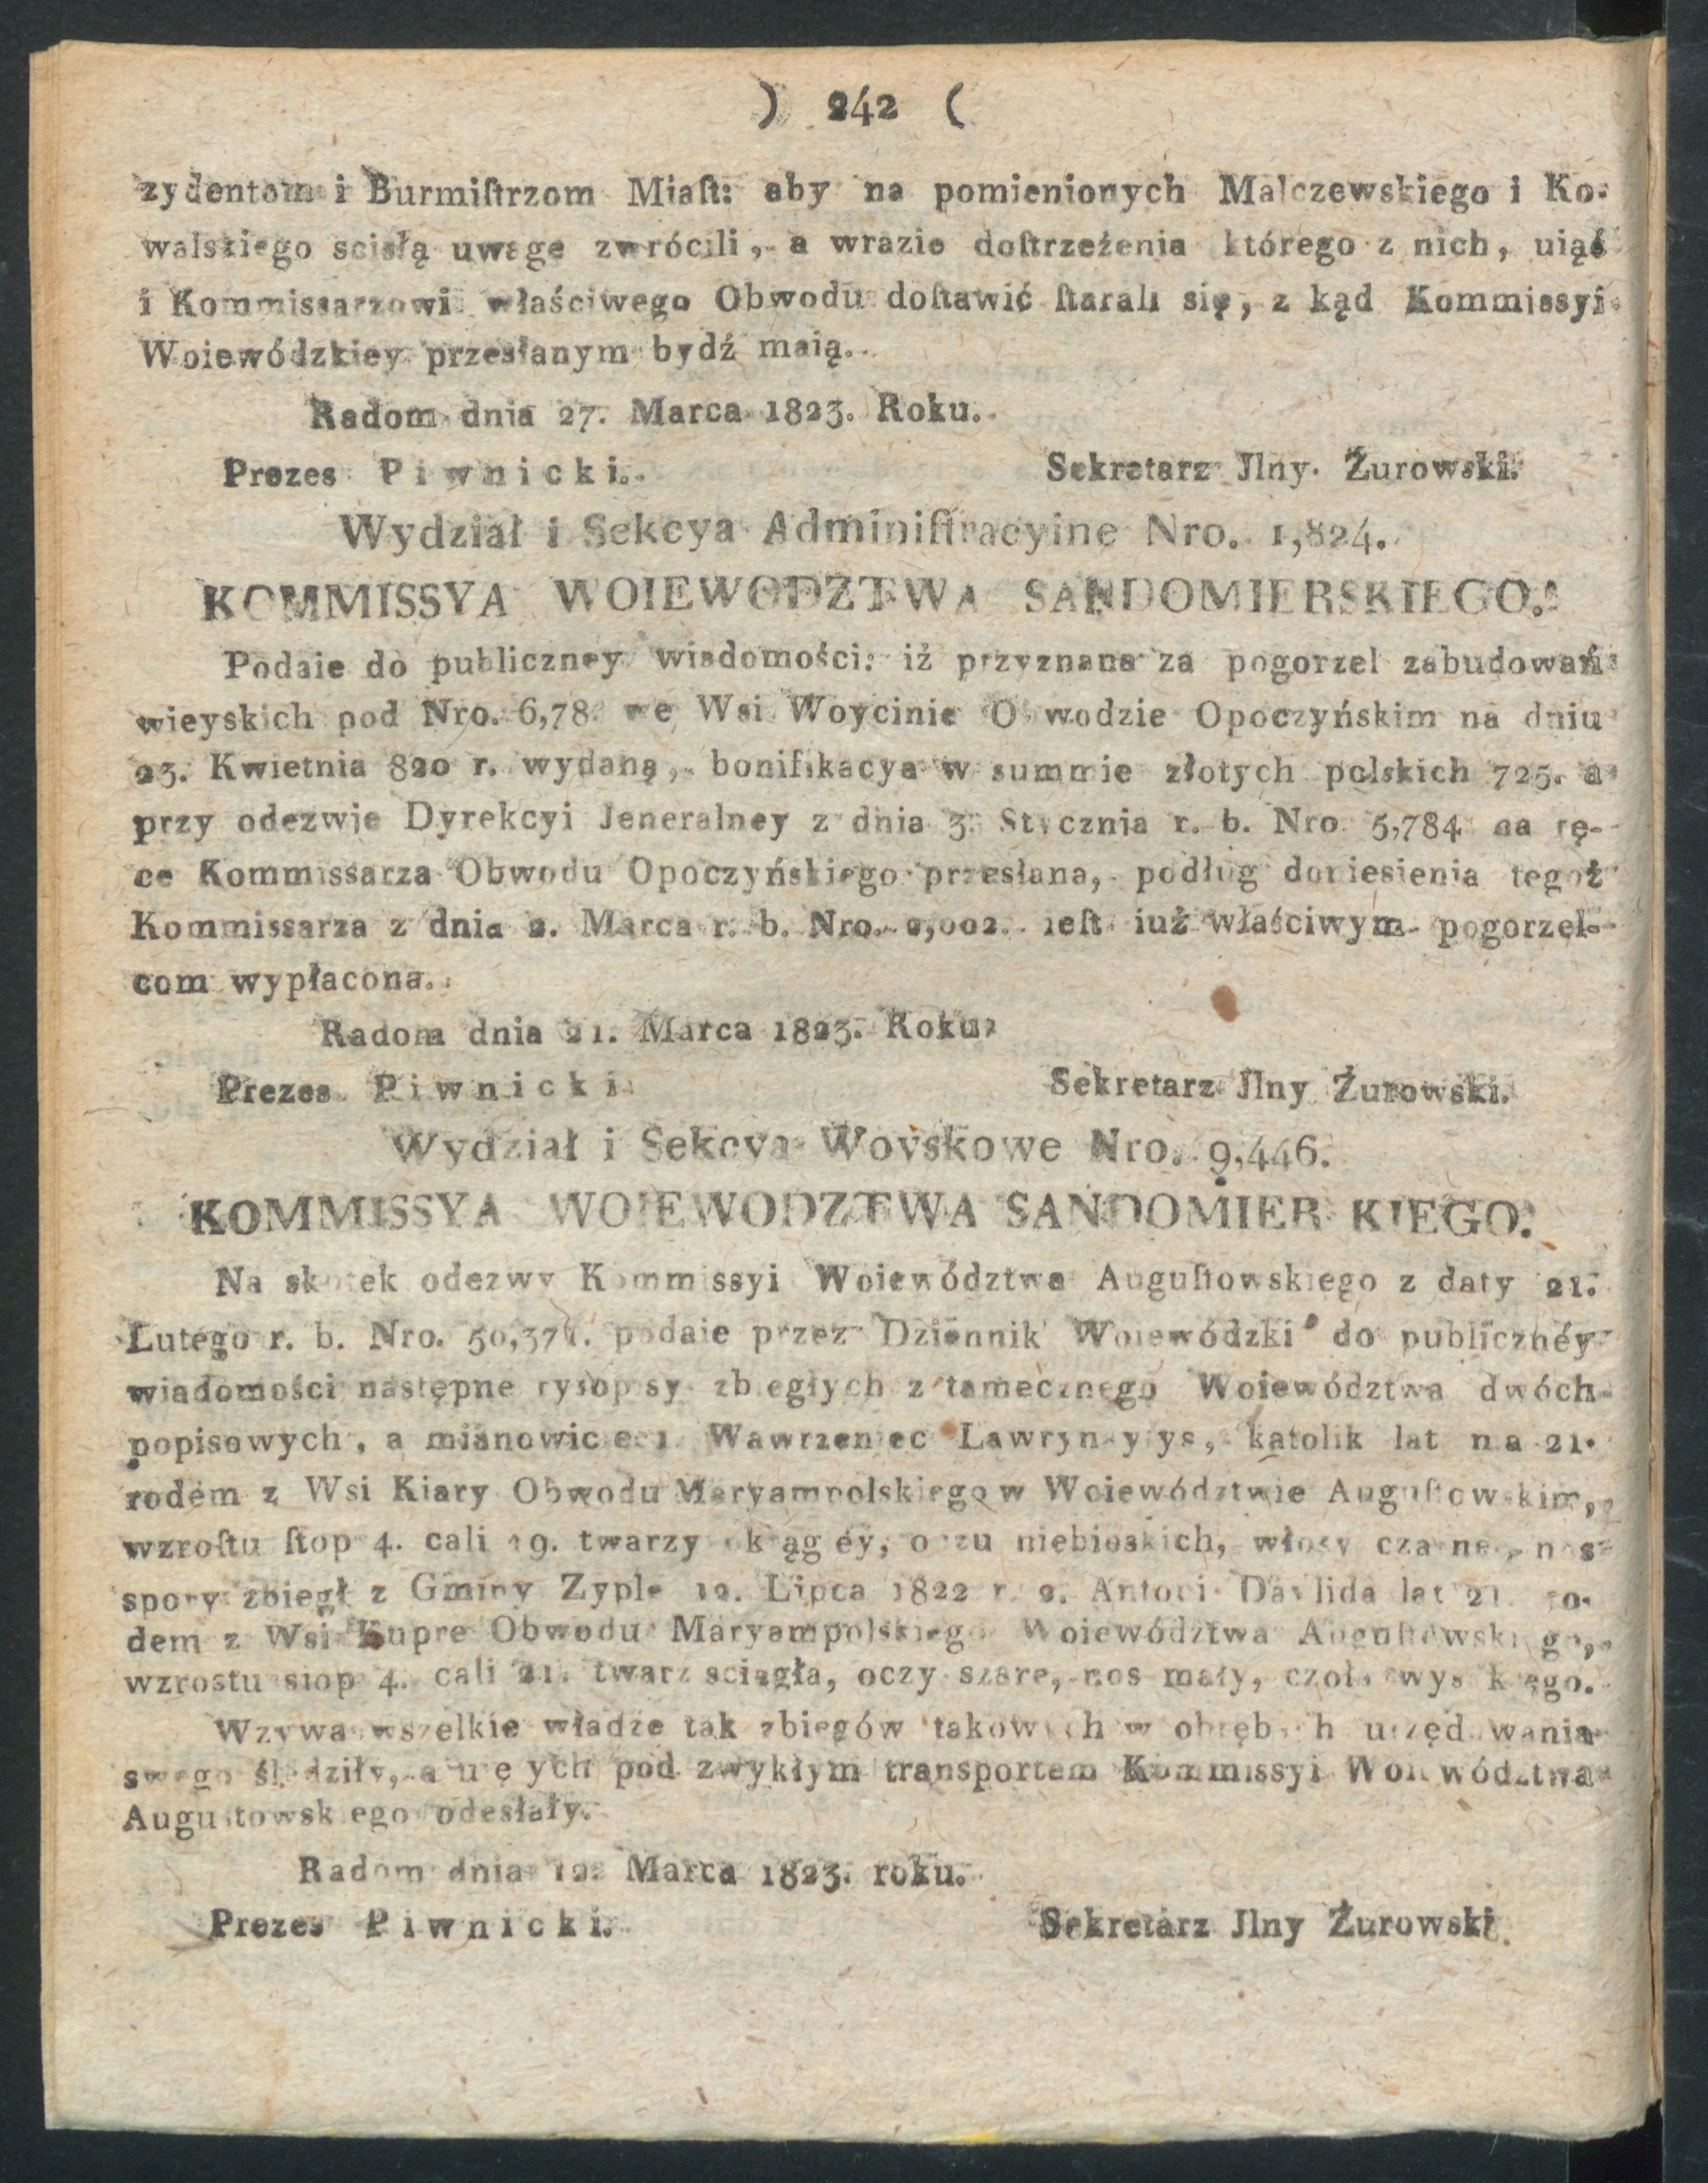 ) 242 (
zydentom i Burmiſtrzom Miaſt: aby na pomienionych Malczewskiego i Ko-
walskiego scisłą uwage zwrócili, a wrazie doſtrzeżenia którego z nich, uiąć
i Kommissarzowi właściwego Obwodu doſtawić ſtarali się, z kąd Kommissyi
Woiewódzkiey przesłanym bydź maią.
Radom dnia 27. Marca 1823. Roku.
Prezes Piwnicki. Sekretarz Jlny. Żurowski.
Wydział i Sekcya Adminiſtracyine Nro. 1,824.
KOMMISSYA WOIEWODZTWA SANDOMIERSKIEGO.
Podaie do publiczney wiadomości: iż przyznana za pogorzel zabudowań
wieyskich pod Nro. 6,78 we Wsi Woycinie Obwodzie Opoczyńskim na dniu
23. Kwietnia 820 r. wydaną, bonifikacya w summie złotych polskich 725. a
przy odezwie Dyrekcyi Jeneralney z dnia 3. Stycznia r. b. Nro 5,784 na rę-
ce Kommissarza Obwodu Opoczyńskiego przesłana, podług doniesienia tegoż
Kommissarza z dnia 2. Marca r. b. Nro. 2,002. ieſt iuż właściwym pogorzel-
com wypłacona.
Radom dnia 21. Marca 1823. Roku
Prezes Piwnicki Sekretarz Jlny Żurowski.
Wydział i Sekcya Woyskowe Nro. 9,446.
KOMMISSYA WOIEWODZTWA SANDOMIER KIEGO.
Na skutek odezwy Kommissyi Woiewództwa Auguſtowskiego z daty 21.
Lutego r. b. Nro. 50,371. podaie przez Dziennik Woiewódzki do publicznéy
wiadomości następne rysopisy zbiegłych z tamecznego Woiewództwa dwóch
popisowych, a mianowicie 1 Wawrzeniec katolik lat ma 21.
rodem z Wsi Kiary Obwodu Maryampolskiego w Woiewództwie Auguſtowskim,
wzroſtu ſtop 4. cali 19. twarzy okrągłéy, oczu niebieskich, włosy czarne, nos
spory zbiegł z Gminy Zyple 12. Lipca 1822 r 2. Antoni Davlida lat 21 ro-
dem z Wsi Kupre Obwodu Maryampolskiego Woiewództwa Auguſtowskiego,
wzrostu stop 4. cali 21. twarz sciągła, oczy szare, nos mały, czoła wysokiego.
Wzywa wszelkie władze tak zbiegów takowych w obrębach urzędowania
swego śledziły, a uiętych pod zwykłym transportem Kommissyi Woiewództwa
Augustowskiego odesłały.
Radom dnia 12. Marca 1823. roku.
Prezes Piwnicki. Sekretarz Jlny Żurowski.